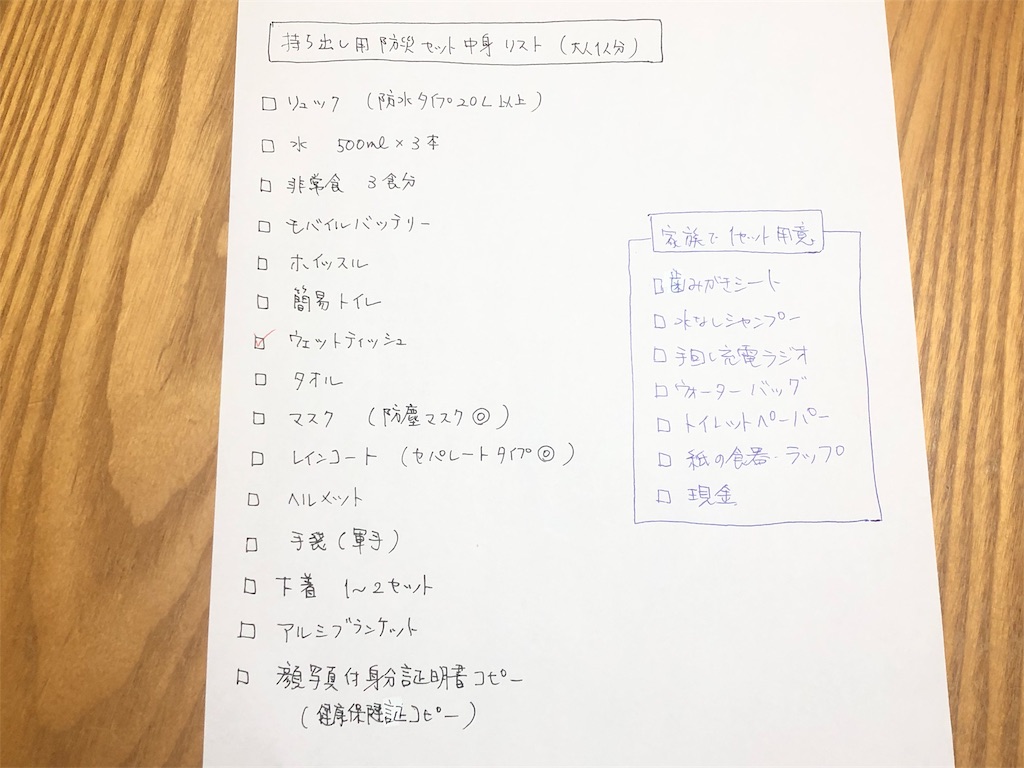 持ち出し用防災セット中身リスト（大人1人分）
□ リュック （防水タイプ20L以上）
□ 水 500ml×3本
□ 非常食 3食分
□ モバイルバッテリー
□ ホイッスル
□ 簡易トイレ
☑ ウェットティッシュ
□ タオル
□ マスク （防塵マスク◎）
□ レインコート （セパレートタイプ◎）
□ ヘルメット
□ 手袋（軍手）
□ 下着 1〜2セット
□ アルミブランケット
□ 顔写真付身分証明書コピー
（健康保険証コピー）
家族で1セット用意
□ 歯みがきシート
□ 水なしシャンプー
□ 手回し充電ラジオ
□ ウォーターバッグ
□ トイレットペーパー
□ 紙の食器・ラップ
□ 現金